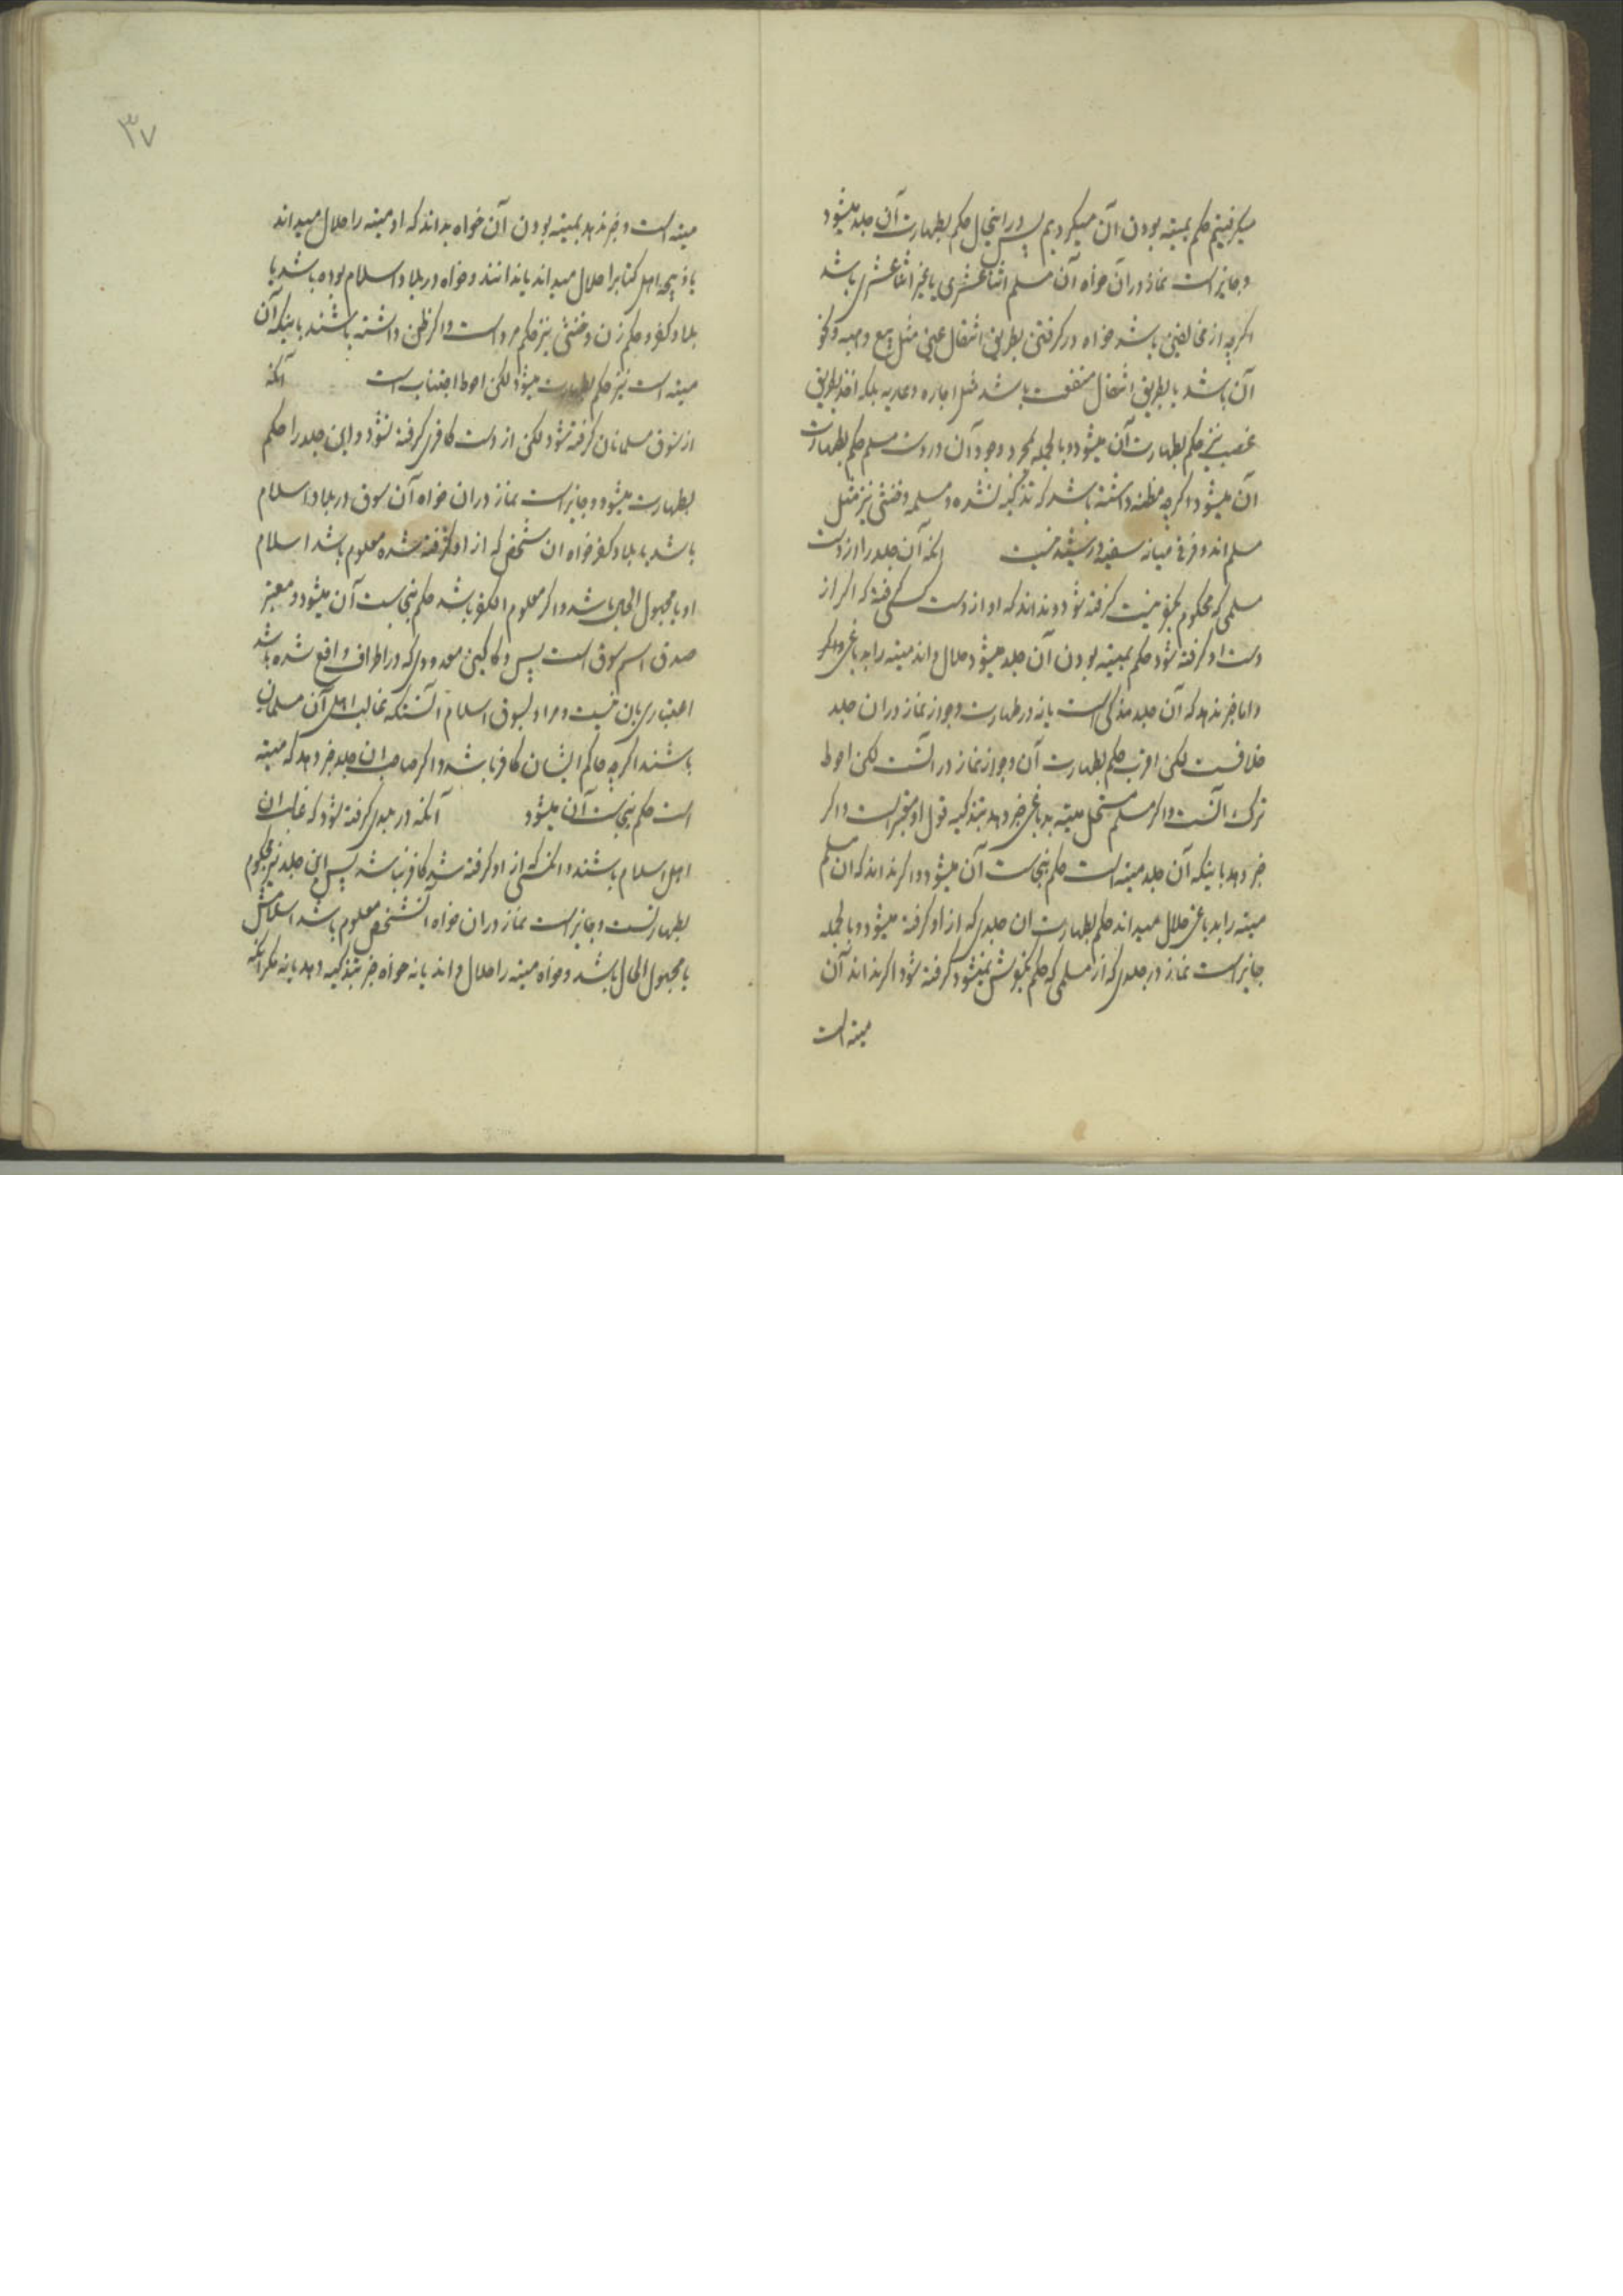 میکرفتیم حکم بمیته بودن آن میکردیم پس در اینحال حکم بطهارت آن جلد میشود
و جایز است نماز در آن خواه آن مسلم اثناعشری یا غیر اثناعشری باشد
اگرچه از مخالفین باشد خواه در گرفتن بطریق انتقال عین مثل بیع و هبه و نحو
آن باشد یا بطریق انتقال منفعت باشد مثل اجاره و عاریه بلکه اخذ بطریق
غصب نیز حکم بطهارت آن میشود و بالجمله بمجرد وجود آن در دست مسلم حکم بطهارت
آن میشود و اگرچه مظنه داشته باشد که تذکیه نشده و مسلمه و خنثی نیز مثل
مسلم اند و فرقی میانه سفیه و رشید نیست آنکه آن جلد را از دست
مسلمی که محکوم بکفر نیست گرفته شود و نداند که او از دست کسی گرفته که اگر از
دست او گرفته شود حکم بمیته بودن آن جلد میشود حلال داند میته را بدباغی و
و اما خبر ندهد که آن جلد مذکی است یا نه در طهارت و جواز نماز در ان جلد
خلافست لکن اقرب حکم بطهارت آن و جواز نماز در آنست لکن احوط
ترک آنست و اگر مسلم مستحل میته بدباغی خبر دهد بتذکیه قول او معتبر است و اگر
خبر دهد باینکه آن جلد میته است حکم بنجاست آن میشود و اگر نداند که ان مسلم
میته را بدباغی حلال میداند حکم بطهارت ان جلدی که از او گرفته میشود و بالجمله
جایز است نماز در جلدی که از مسلمی که حکم بکفرش نمیشود گرفته شود اگر نداند آن
میته است
۳۷
میته است و خبر ندهد بمیته بودن آن خواه بداند که او میته را حلال میداند
یا ذبیحه اهل کتابرا حلال میداند یا ندانند و خواه در بلاد اسلام بوده باشد یا
بلاد کفر و حکم زن و خنثی نیز حکم مرد است و اگر ظن داشته باشند باینکه آن
میته است نیز حکم بطهارت میشود لکن احوط اجتناب است آنکه
از سوق مسلمانان گرفته شود لکن از دست کافری گرفته نشود و این جلد را حکم
بطهارت میشود و جایز است نماز در ان خواه آن سوق در بلاد اسلام
باشد یا بلاد کفر خواه ان شخص که از او گرفته شده معلوم باشد اسلام
او یا مجهول الحال باشد و اگر معلوم الکفر باشد حکم بنجاست آن میشود و معتبر
صدق اسم سوق است پس دکاکین معدودی که در اطراف واقع شده باشد
اعتباری بان نیست و مراد بسوق اسلام آنستکه غالب اهل آن مسلمان
باشند اگرچه حاکم ایشان کافر باشد و اگر صاحب ان جلد خبر دهد که میته
است حکم بنجاست آن میشود آنکه در بلدی گرفته شود که غالب ان
اهل اسلام باشند و آنکسی که از او گرفته شد کافر نباشد پس این جلد نیز محکوم
بطهارتست و جایز است نماز در ان خواه آنشخص معلوم باشد اسلامش
یا مجهول الحال باشد و خواه میته را حلال داند یا نه خواه خبر بتذکیه دهد یا نه مگر آنکه